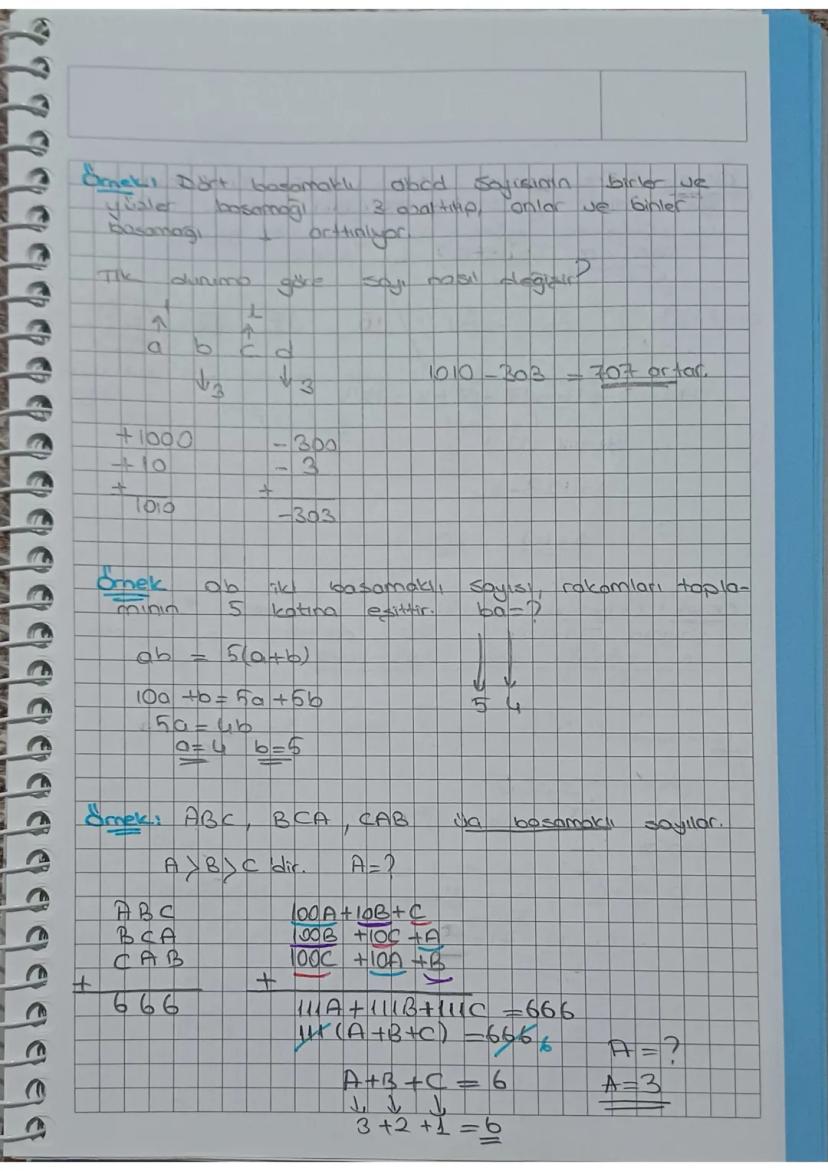 Örnek: Dört basamaklı abcd sayısının birler ve
yüzler basamağı 3 azaltılıp, onlar ve binler
basamağı 1 arttırılıyor.
İlk duruma göre sayı nasıl değişir?
1 1
↑ ↑
a b c d
↓3 ↓3
1010 - 303 = 707 artar.
+1000 -300
+10 -3
+ +
1010 -303
Örnek ab iki basamaklı sayısı, rakamları topla-
mının 5 katına eşittir. ba=?
ab = 5(a+b)
10a +b = 5a +5b
5 4
5a = 4b
a=4 b=5
Örnek: ABC, BCA, CAB üç basamaklı sayılar.
A>B>C dir. A=?
ABC 100A+10B+C
BCA 100B +10C +A
CAB 100C +10A +B
+ +
666 111A+111B+111C =666
111(A+B+C) =666 6
A=?
A+B+C = 6
A=3
↓ ↓ ↓
3+2+1=6